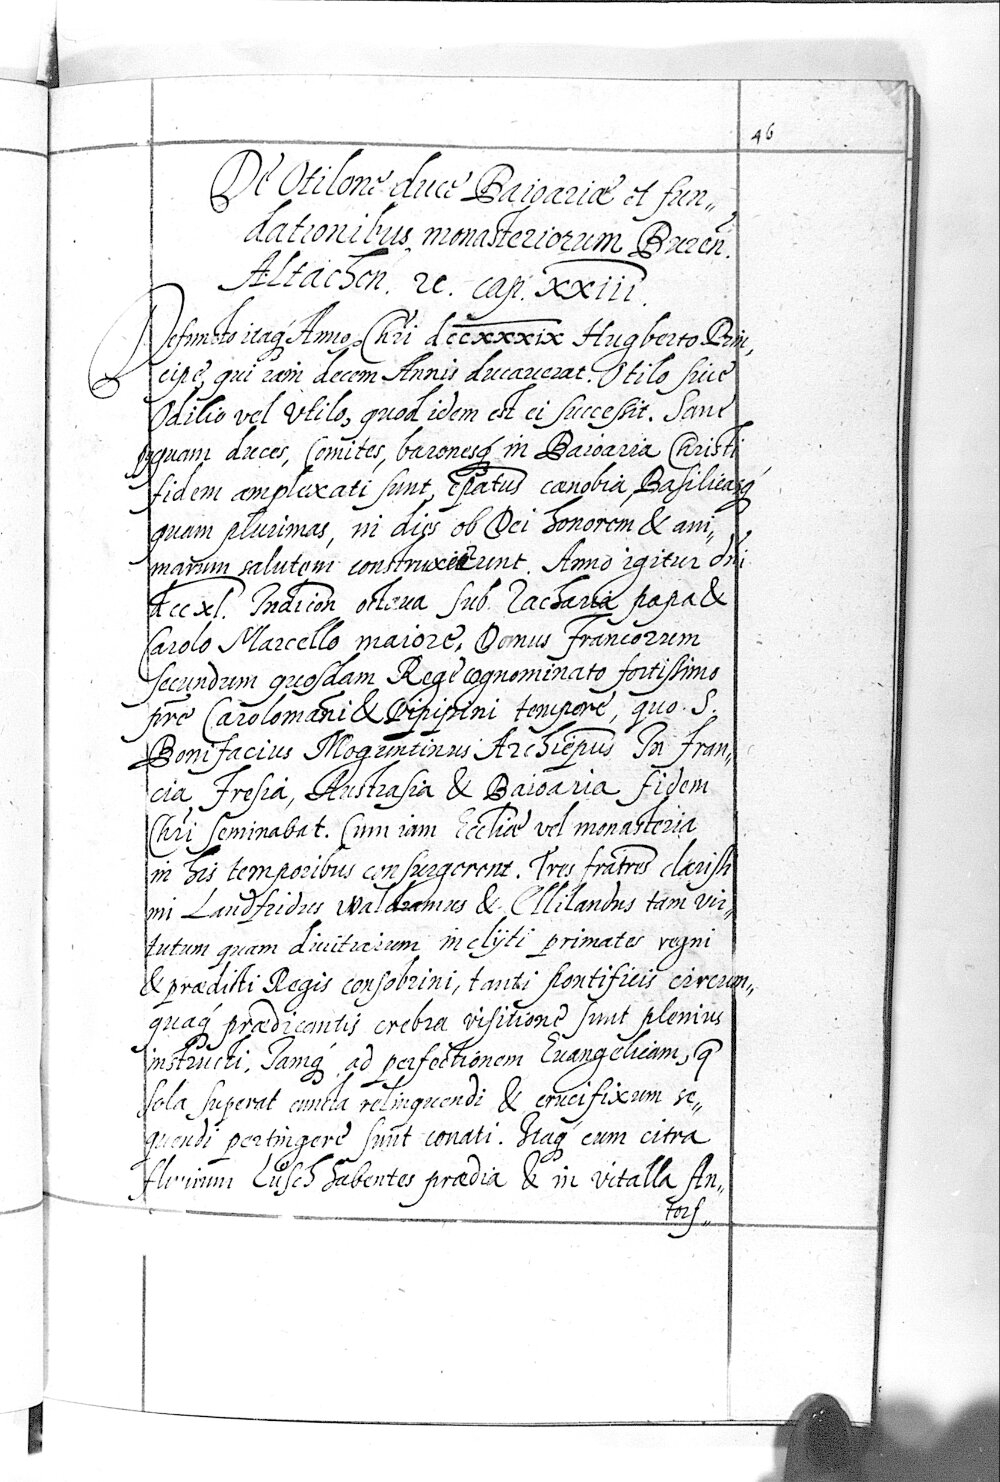 46
De Otilone duce Baioariæ et fun„
dationibus monasteriorum Buren.
Altachen. ꝛc. cap. XXIII.
Defuncto itaq́ Anno Chri dccxxxix Hugberto Prin,
cipe, qui iam decem Annis ducauerat. Otilo siue
Odilio vel Vtilo, quod idem est ei successit. Sane
quam duces, Comites, baronesq́ in Baioaria Christi
fidem amplexati sunt, epatus cœnobia, Basilicasq́
quam plurimas, in dies ob Dei honorem & ani„
marum salutem construxerunt. Anno igitur dni
dccxl. Indicon octaua sub Zacharia papa &
Carolo Marcello maiore, Domus Francorum
secundum quosdam Rege cognominato fortissimo
pre Carolomani & Pipipini tempore, quo S.
Bonifacius Moguntinus Archiepus In Fran„
cia Fresia, Austrasia & Baioaria fidem
Chri seminabat. Cum iam Eccliæ vel monasteria
in his temporibus consurgerent. Tres fratres clarissi
mi Landfridus Waldramus & Ellilandus tam vir„
tutum quam diuitiarum inclijti primates regni
& prædicti Regis consobrini, tanti Pontificis circum„
quaq́ prædicantis crebra visitione sunt plenius
instructi, Iamq́ ad perfectionem Euangelicam, q
sola superat cuncta relinquendi & crucifixum se„
quendi pertingere sunt conati. Itaq́ cum citra
fluuium Lusch habentes prædia & in vitalla An„
torf„